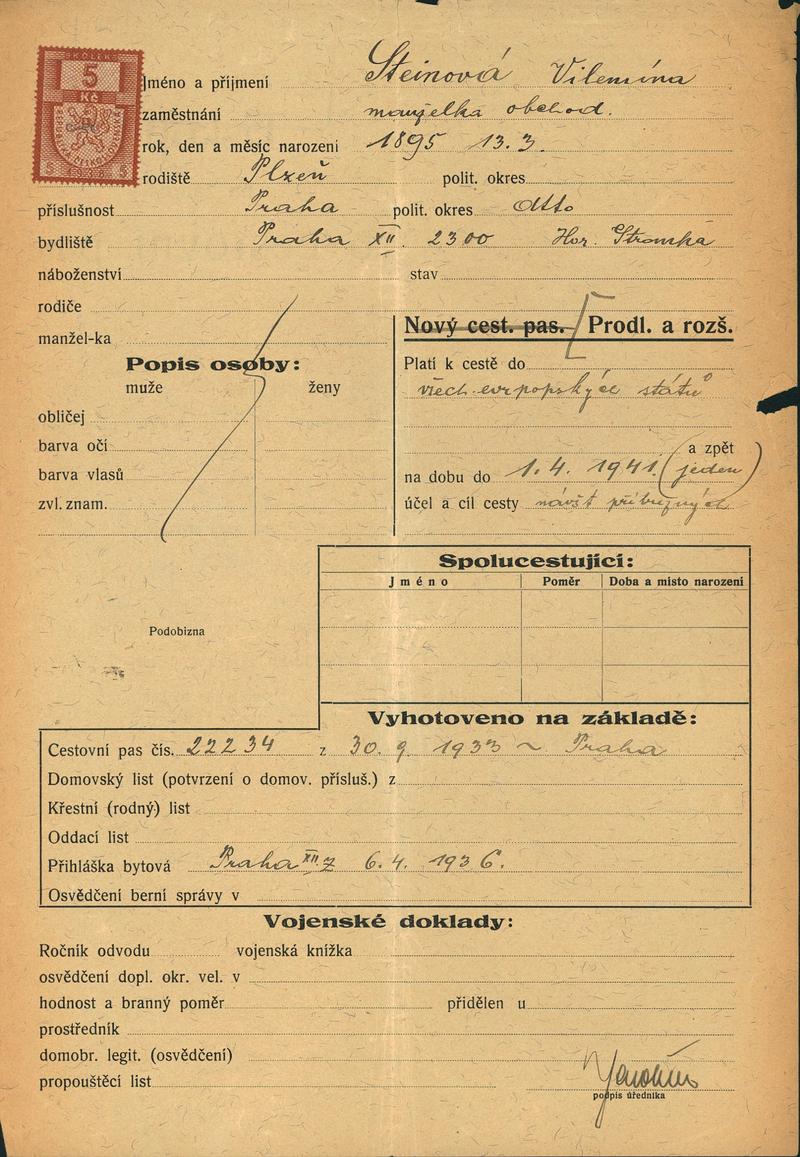 KOLEK
5
Kč
1938
Jméno a příjmení Steinová Vilemína
zaměstnání manželka obchod.
rok, den a měsíc narození 1895 13. 3.
rodiště Plzeň polit. okres
příslušnost Praha polit. okres dtto
bydliště Praha XII. 2300 Hor. Stromka
náboženství stav
rodiče
manžel-ka
Nový cest. pas. Prodl. a rozš.
Popis osoby:
muže ženy
obličej
barva očí
barva vlasů
zvl. znam.
Platí k cestě do
všech evropských států
a zpět
na dobu do 1. 4. 1941. (jeden)
účel a cíl cesty návšt příbuzných
Spolucestující:
Jméno Poměr Doba a místo narození
Podobizna
Vyhotoveno na základě:
Cestovní pas čís. 22234 z 30. 9. 1933 Praha
Domovský list (potvrzení o domov. přísluš.) z
Křestní (rodný) list
Oddací list
Přihláška bytová Praha XII z 6. 4. 1936.
Osvědčení berní správy v
Vojenské doklady:
Ročník odvodu vojenská knížka
osvědčení dopl. okr. vel. v
hodnost a branný poměr přidělen u
prostředník
domobr. legit. (osvědčení)
propouštěcí list
podpis úředníka